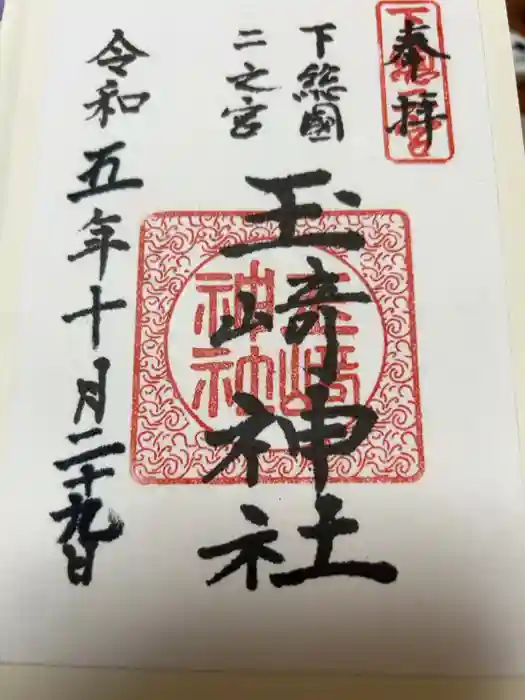 奉拝
下総國
二之宮
玉﨑神社
令和五年十月二十九日
玉崎
神社